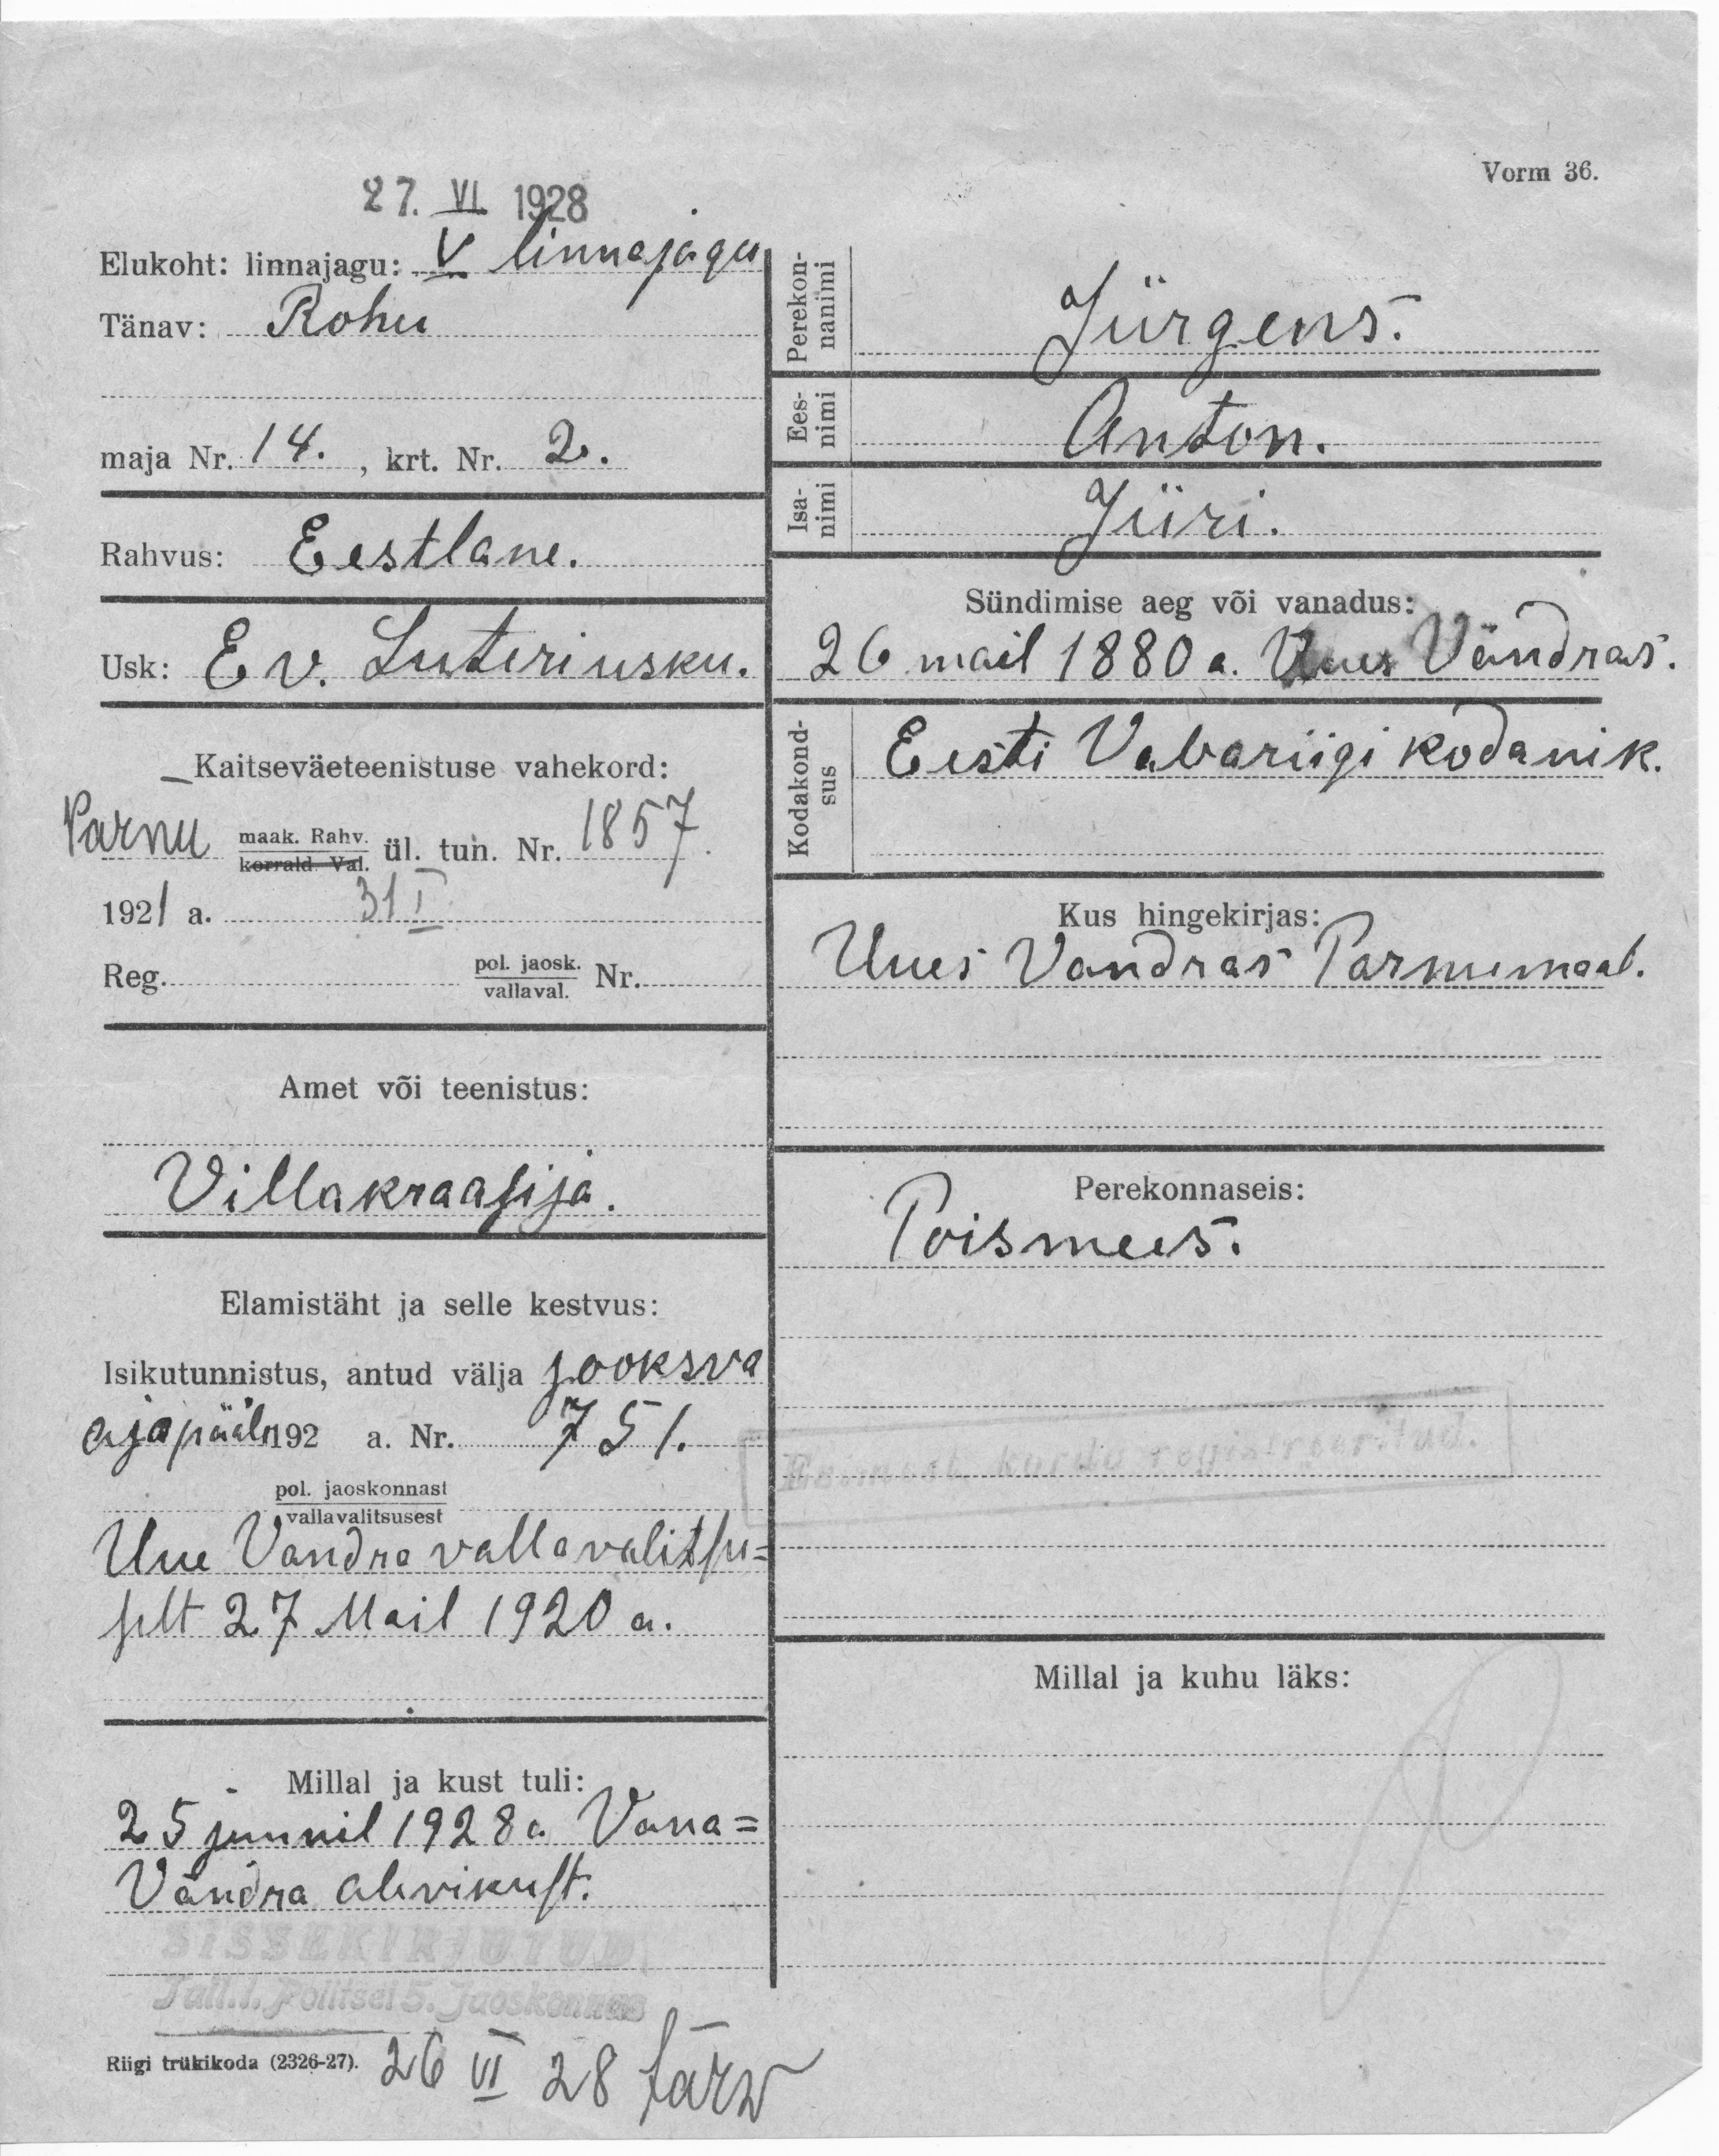 Vorm 36.
27. VI 1928
Elukoht: linnajagu: V linnajagu
Tänav: Rohu
maja Nr. 14. , krt. Nr. 2.
Rahvus: Eestlane.
Usk: Ev. Luteriusku.
Kaitseväeteenistuse vahekord:
Parnu maak. Rahv. ül. tun. Nr. 1857.
korrald. Val.
1921 a. 31 I
Reg. pol. jaosk. Nr.
vallaval.
Amet või teenistus:
Villakraasija.
Elamistäht ja selle kestvus:
Isikutunnistus, antud välja jooksva
aja pääle 192 a. Nr. 751.
pol. jaoskonnast
vallavalitsusest
Uue Vandra vallavalitsu=
selt 27 Mail 1920 a.
Millal ja kust tuli:
25 juunil 1928 a Vana=
Vändra alevikust.
SISSEKIRJUTUD
Tall.l. Politsei 5. Jaoskonnas
Riigi trükikoda (2326-27). 26 VI 28
Perekon-
nanimi
Jürgens.
Ees-
nimi
Anton.
Isa-
nimi
Jüri.
Sündimise aeg või vanadus:
26 mail 1880 a. Uues Vändras.
Kodakond-
sus
Eesti Vabariigi kodanik.
Kus hingekirjas:
Uues Vandras Parnumaal.
Perekonnaseis:
Poismees.
Esimest korda registreeritud.
Millal ja kuhu läks: